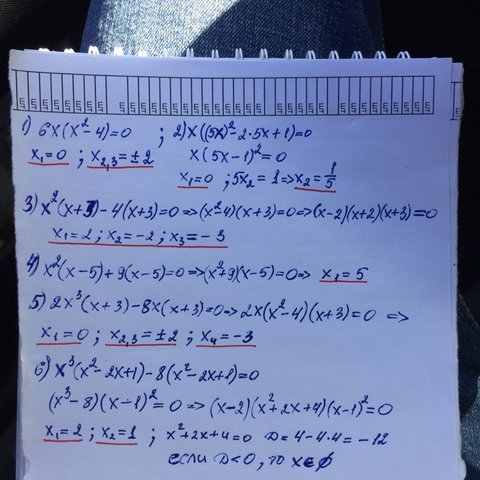 1) 6x(x²-4)=0 ; 2) x((5x)²-2·5x+1)=0
x₁=0 ; x₂,₃=±2 x(5x-1)²=0
x₁=0 ; 5x₂=1=>x₂=1/5
3) x²(x+3)-4(x+3)=0=>(x²-4)(x+3)=0=>(x-2)(x+2)(x+3)=0
x₁=2 ; x₂=-2 ; x₃=-3
4) x²(x-5)+9(x-5)=0=>(x²+9)(x-5)=0=> x₁=5
5) 2x³(x+3)-8x(x+3)=0=>2x(x²-4)(x+3)=0 =>
x₁=0 ; x₂,₃=±2 ; x₄=-3
6) x³(x²-2x+1)-8(x²-2x+1)=0
(x³-8)(x-1)²=0 => (x-2)(x²+2x+4)(x-1)²=0
x₁=2 ; x₂=1 ; x²+2x+4=0 D=4-4·4=-12
если D<0, то x∈∅